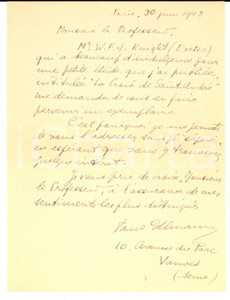 Paris, 30 juin 1948
Monsieur le Professeur,
Mr. W.F.J. Knight (Exeter)
qui a beaucoup d'indulgence pour
une petite étude que j'ai publiée,
intitulée "La Croix de Saint-André"
me demande de vous en faire
parvenir un exemplaire.
C'est pourquoi je me permets
de vous l'adresser sous pli séparé,
en espérant que vous y trouverez
quelque intérêt.
Je vous prie de croire, Monsieur
le Professeur, à l'assurance de mes
sentiments les plus distingués
Paul
10, Avenue du Parc
Vanves
(Seine)